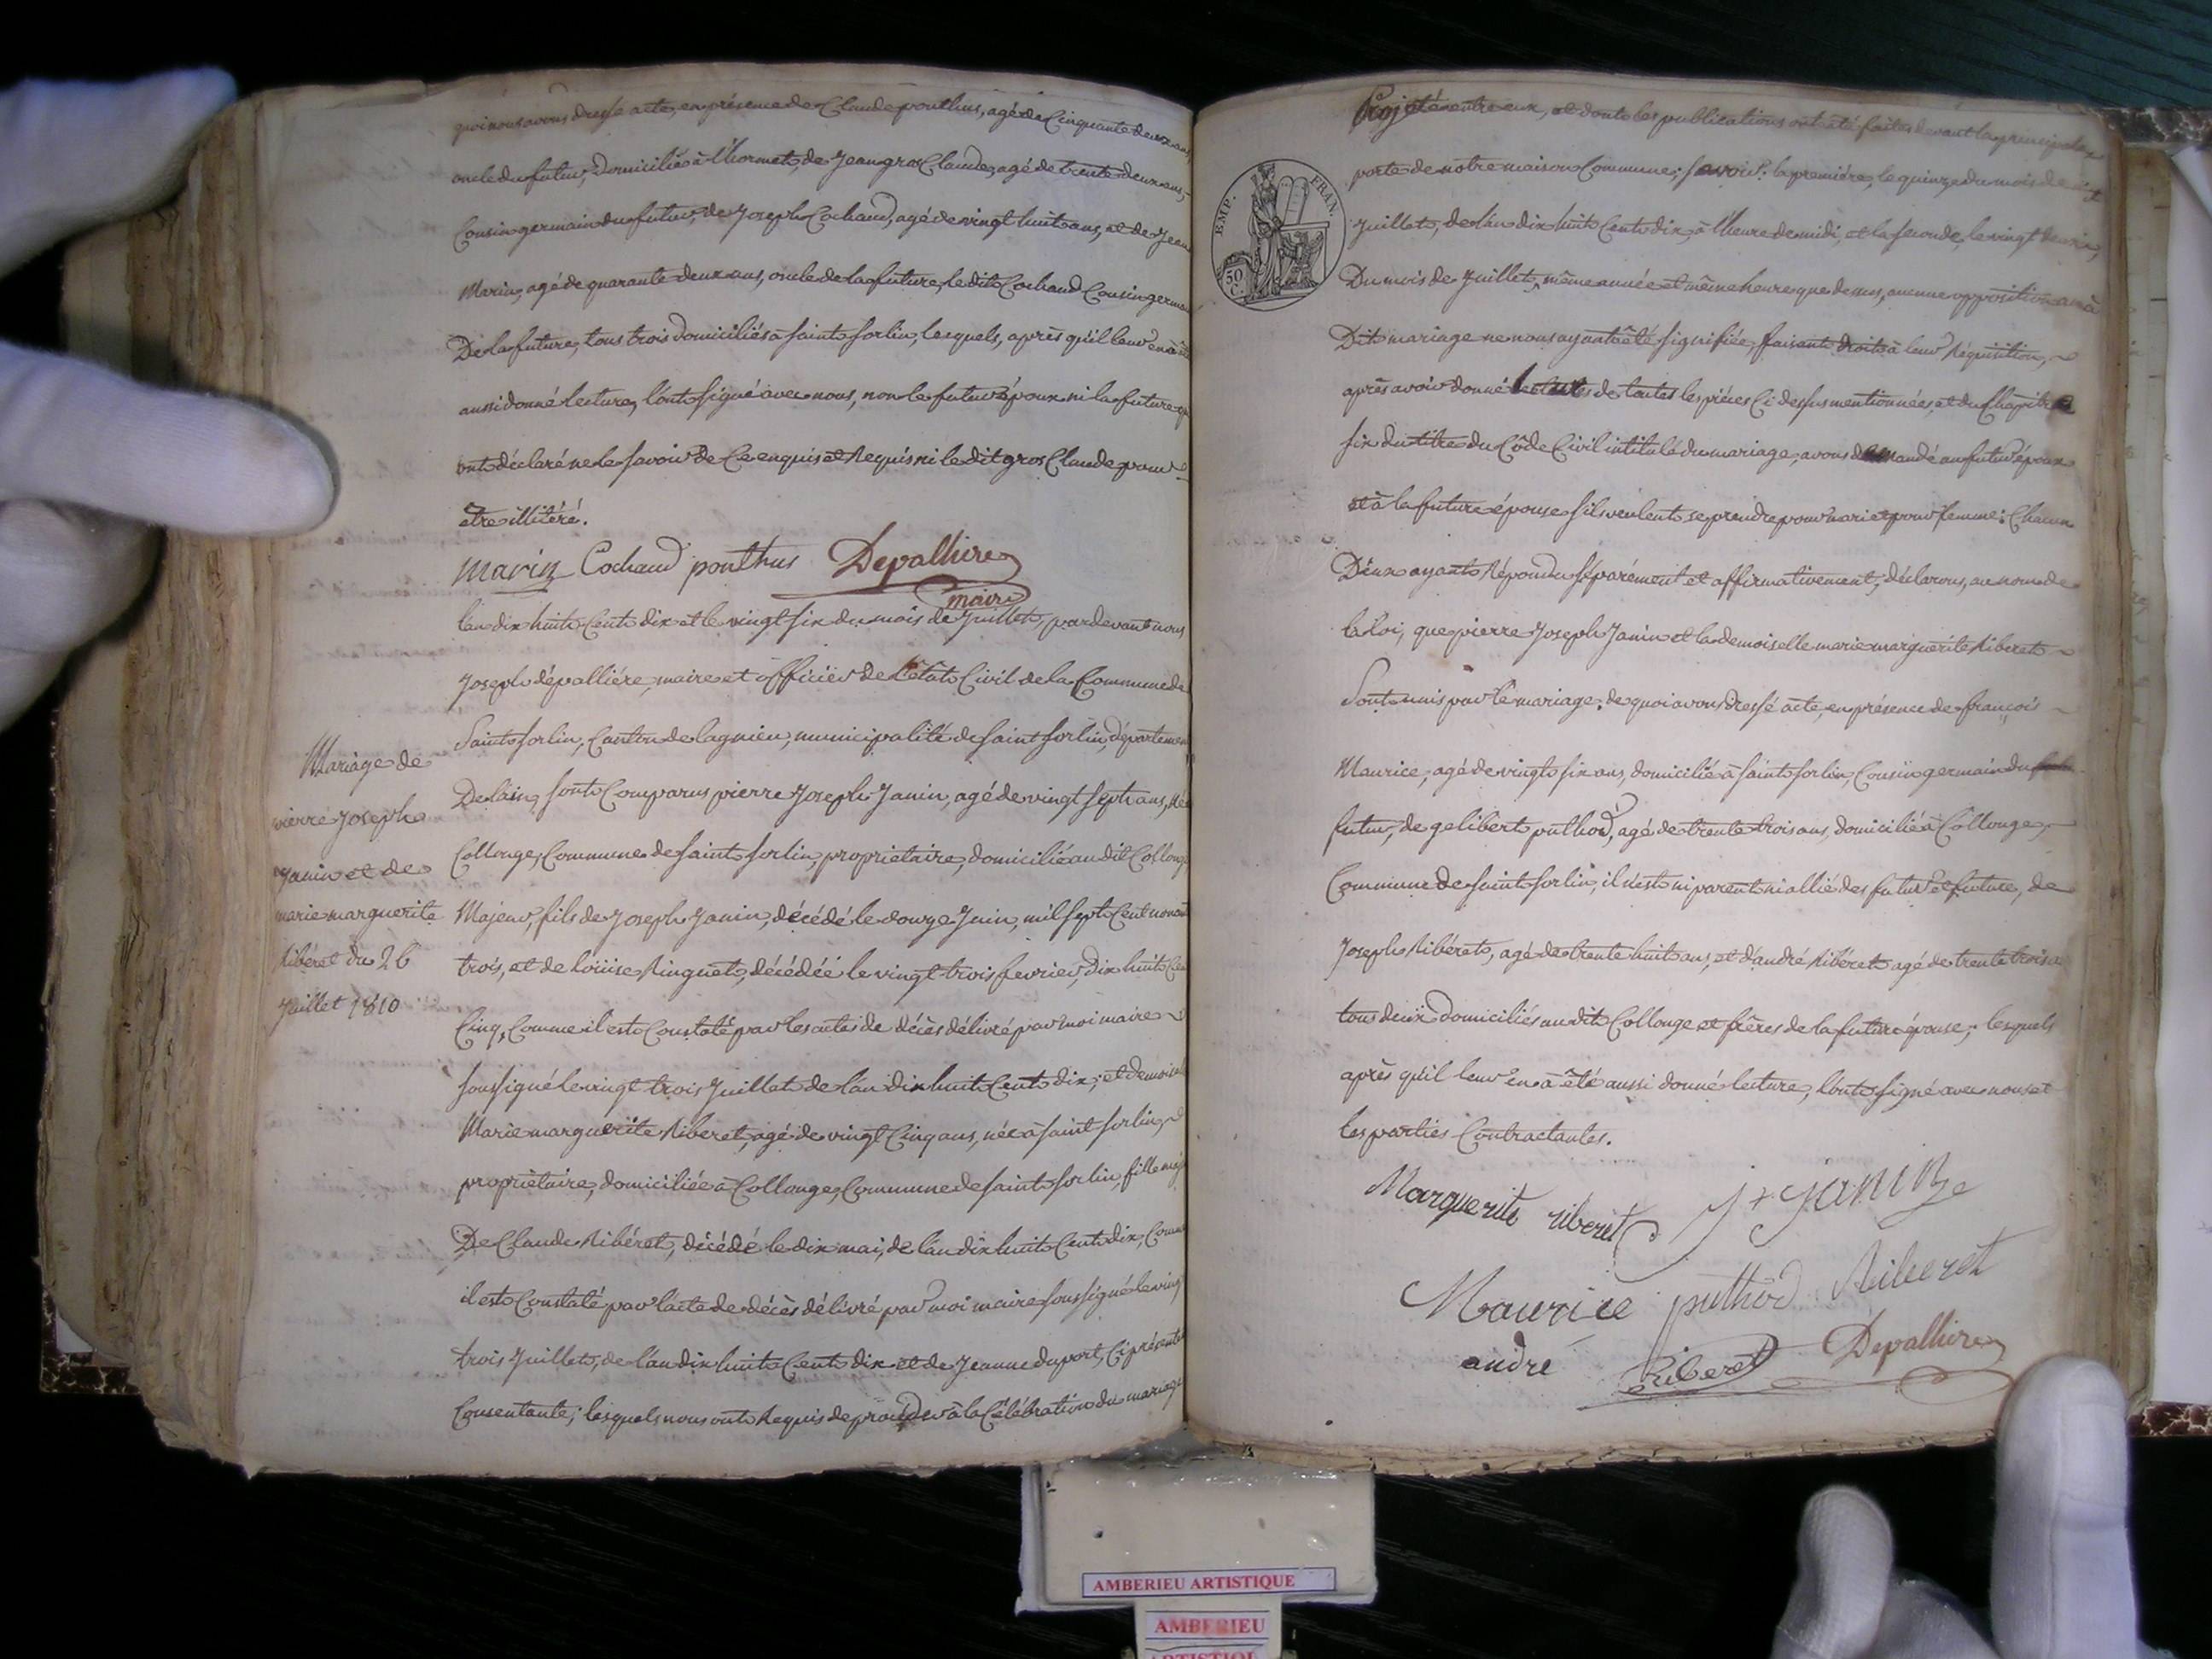 quoi nous avons dressé acte, en présence de Claude ponthus, agé de Cinquante deux ans,
oncle du futur, Domicilié à l'hormet, de Jean gros Claude, agé de trente deux ans,
Cousin germain du futur, de Joseph Cochaud, agé de vingt huit ans, et de Jean
Marin, agé de quarante deux ans, oncle de la future, le dit Cochaud Cousin germ
De la future, tous trois domiciliés à saint sorlin, lesquels, après qu'il leur en à
aussi donné lecture, l'ont signé avec nous, non le futur époux ni la future
ont déclaré ne le savoir de Ce enquis et Requis ni le dit gros Claude pour
etre illitéré.
marin Cochaud ponthus Depalliere
maire
Mariage de
pierre Joseph
Janin et de
marie marguerite
Ribéret du 26
Juillet 1810
l'an dix huit Cent dix et le vingt six du mois de Juillet, par devant nous
Joseph dépalliére, maire et officier de l'état Civil de la Commune de
Saint sorlin, Canton de lagnieu, municipalité de saint sorlin, départemen
De lain, sont Comparus pierre Joseph Janin, agé de vingt sept ans, né
Collonge, Commune de saint sorlin, proprietaire, domicilié au dit Collong
Majeur, fils de Joseph Janin, décédé le douze Juin, mil sept Cent nonan
trois, et de loüise Ringuet, décédéé le vingt trois fevrier, Dix huit Cen
Cinq, Comme il est Constaté par les actes de décès délivré par moi maire
soussigné le vingt trois Juillet de l'an dix huit Cent dix; et demoisel
Marie marguerite Riberet, agé de vingt Cinq ans, née à saint sorlin,
propriètaire, domiciliée à Collonge, Commune de saint sorlin, fille maj
De Claude Ribéret, décédé le dix mai, de l'an dix huit Cent dix, Comm
il est Constaté par l'acte de décès délivré par moi maire soussigné le ving
trois Juillet, de l'an dix huit Cent dix et de Jeanne duport, Ci présente
Consentante; lesquels nous ont Requis de procéder à la Célébration du mariage
Projeté entre eux, et dont les publications ont été faites devant la principale
porte de nôtre maison Commune; savoir: la première, le quinze du mois de
Juillet, de l'an dix huit Cent dix, à l'heure de midi, et la seconde, le vingt deux
Du mois de Juillet, même année et même heure que dessus, aucune opposition au
Dit mariage ne nous ayant êté signifiée, faisant droit à leur Réquisition,
après avoir donné lecture de toutes les pièces Ci dessus mentionnées, et du Chapitre
six du titre du Côde Civil intitulé du mariage, avons demandé au futur époux
et à la future épouse s'ils veulent se prendre pour mari et pour femme: Chacun
D'eux ayant Répondu séparément et affirmativement; déclarons, au nom de
la Loi, que pierre Joseph Janin et la demoiselle marie marguerite Riberet
Sont unis par le mariage: de quoi avons dressé acte, en présence de françois
Maurice, agé de vingt six ans, domicilié à saint sorlin, Cousin germain du
futur, de gelibert puthod, agé de trente trois ans, domicilié à Collonge,
Commune de saint sorlin, il n'est ni parent ni allié des futur et future, de
Joseph Ribéret, agé de trente huit ans, et d'andré Ribéret agé de trente trois
tous deux Domiciliés au dit Collonge et frères de la future épouse; lesquels
après qu'il leur en à été aussi donné lecture, l'ont signé avec nous et
les parties Contractantes.
EMP. FRAN.
50 C.
Marguerite riberet Jh JaNIN
Maurice puthod Riberet
andré Riberet Depalliere
AMBERIEU ARTISTIQUE
AMBERIEU
ARTISTIQUE